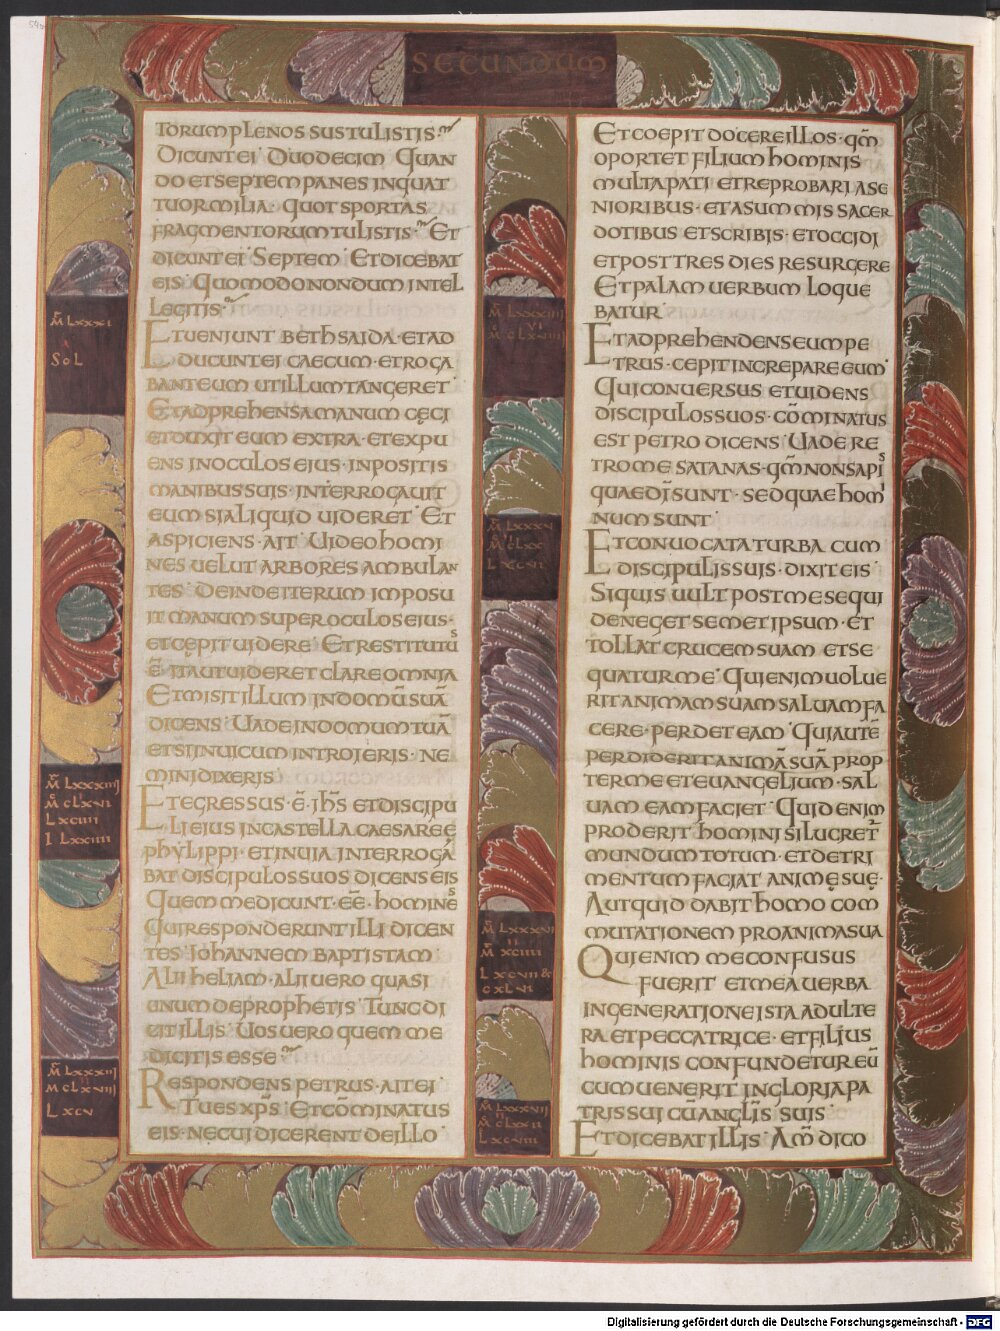 SECUNDUM
TORUM PLENOS SUSTULISTIS
DICUNT EI DUODECIM QUAN
DO ET SEPTEM PANES INQUAT
TUOR MILIA· QUOT SPORTAS
FRAGMENTORUM TULISTIS ET
DICUNT EI SEPTEM ET DICEBAT
EIS· QUOMODO NONDUM INTEL
LEGITIS·
ET UENIUNT BETHSAIDA· ET AD
DUCUNT EI CAECUM· ET ROGA
BANT EUM UT ILLUM TANGERET
ET ADPREHENSA MANUM CĘCI
ET DUXIT EUM EXTRA· ET EXPU
ENS IN OCULOS EIUS· INPOSITIS
MANIBUS SUIS· INTERROGAUIT
EUM SI ALIQUID UIDERET· ET
ASPICIENS· AIT· UIDEO HOMI
NES UELUT ARBORES AMBULAN
TES· DEINDE ITERUM IMPOSU
IT MANUM SUPER OCULOS EIUS·
ET CĘPIT UIDERE· ET RESTITUTUS
Ē· ITA UT UIDERET CLARE OMNIA
ET MISIT ILLUM IN DOMŪ SUĀ
DICENS· UADE IN DOMUM TUĀ
ET SI IN UICUM INTROIERIS· NE
MINI DIXERIS·
ET EGRESSUS· Ē· IHS̄ ET DISCIPU
LI EIUS IN CASTELLA CAESAREĘ
PHYLIPPI· ET IN UIA INTERROGA
BAT DISCIPULOS SUOS DICENS EIS
QUEM ME DICUNT· EĒ· HOMINES
QUI RESPONDERUNT ILLI DICEN
TES· IOHANNEM BAPTISTAM
ALII HELIAM· ALII UERO QUASI
UNUM DE PROPHETIS· TUNC DI
CIT ILLIS· UOS UERO QUEM ME
DICITIS ESSE
RESPONDENS PETRUS· AIT EI·
TU ES XPS̄· ET CŌMINATUS
EIS· NE CUI DICERENT DE ILLO·
ET COEPIT DOCERE ILLOS· QM̄
OPORTET FILIUM HOMINIS
MULTA PATI ET REPROBARI A SE
NIORIBUS· ET A SUMMIS SACER
DOTIBUS ET SCRIBIS· ET OCCIDI
ET POST TRES DIES RESURGERE
ET PALAM UERBUM LOQUE
BATUR·
ET ADPREHENDENS EUM PE
TRUS· CEPIT INCREPARE EUM·
QUI CONUERSUS ET UIDENS
DISCIPULOS SUOS· CŌMINATUS
EST PETRO DICENS· UADE RE
TRO ME SATANAS· QM̄ NON SAPIS
QUAE DĪ SUNT· SED QUAE HOMI
NUM SUNT·
ET CONUOCATA TURBA CUM
DISCIPULIS SUIS· DIXIT EIS·
SI QUIS UULT POST ME SEQUI
DENEGET SEMET IPSUM· ET
TOLLAT CRUCEM SUAM ET SE
QUATUR ME· QUI ENIM UOLUE
RIT ANIMAM SUAM SALUAM FA
CERE· PERDET EAM· QUI AUTĒ
PERDIDERIT ANIMĀ SUĀ PROP
TER ME ET EUANGELIUM· SAL
UAM EAM FACIET· QUID ENIM
PRODERIT HOMINI SI LUCRET̄
MUNDUM TOTUM· ET DETRI
MENTUM FACIAT ANIMĘ SUĘ·
AUT QUID DABIT HOMO COM
MUTATIONEM PRO ANIMA SUA
QUI ENIM ME CONFUSUS
FUERIT ET MEA UERBA
IN GENERATIONE ISTA ADULTE
RA ET PECCATRICE· ET FILIUS
HOMINIS CONFUNDETUR EŪ
CUM UENERIT IN GLORIA PA
TRIS SUI CŪ ANGL̄IS SUIS·
ET DICEBAT ILLIS· AM̄ DICO
M̄ LXXXI
SOL
M̄ LXXXIII
M̄ CLXVI
LXCIIII
I LXXIIII
M̄ LXXXII
M CLXVIII
LXCV
M̄ LXXXV
LXCVI
M̄ LXXXVI
M̄ XCIIII
LXCVII &
CXLVI
M̄ LXXXVII
LXCVIII
Digitalisierung gefördert durch die Deutsche Forschungsgemeinschaft - DFG